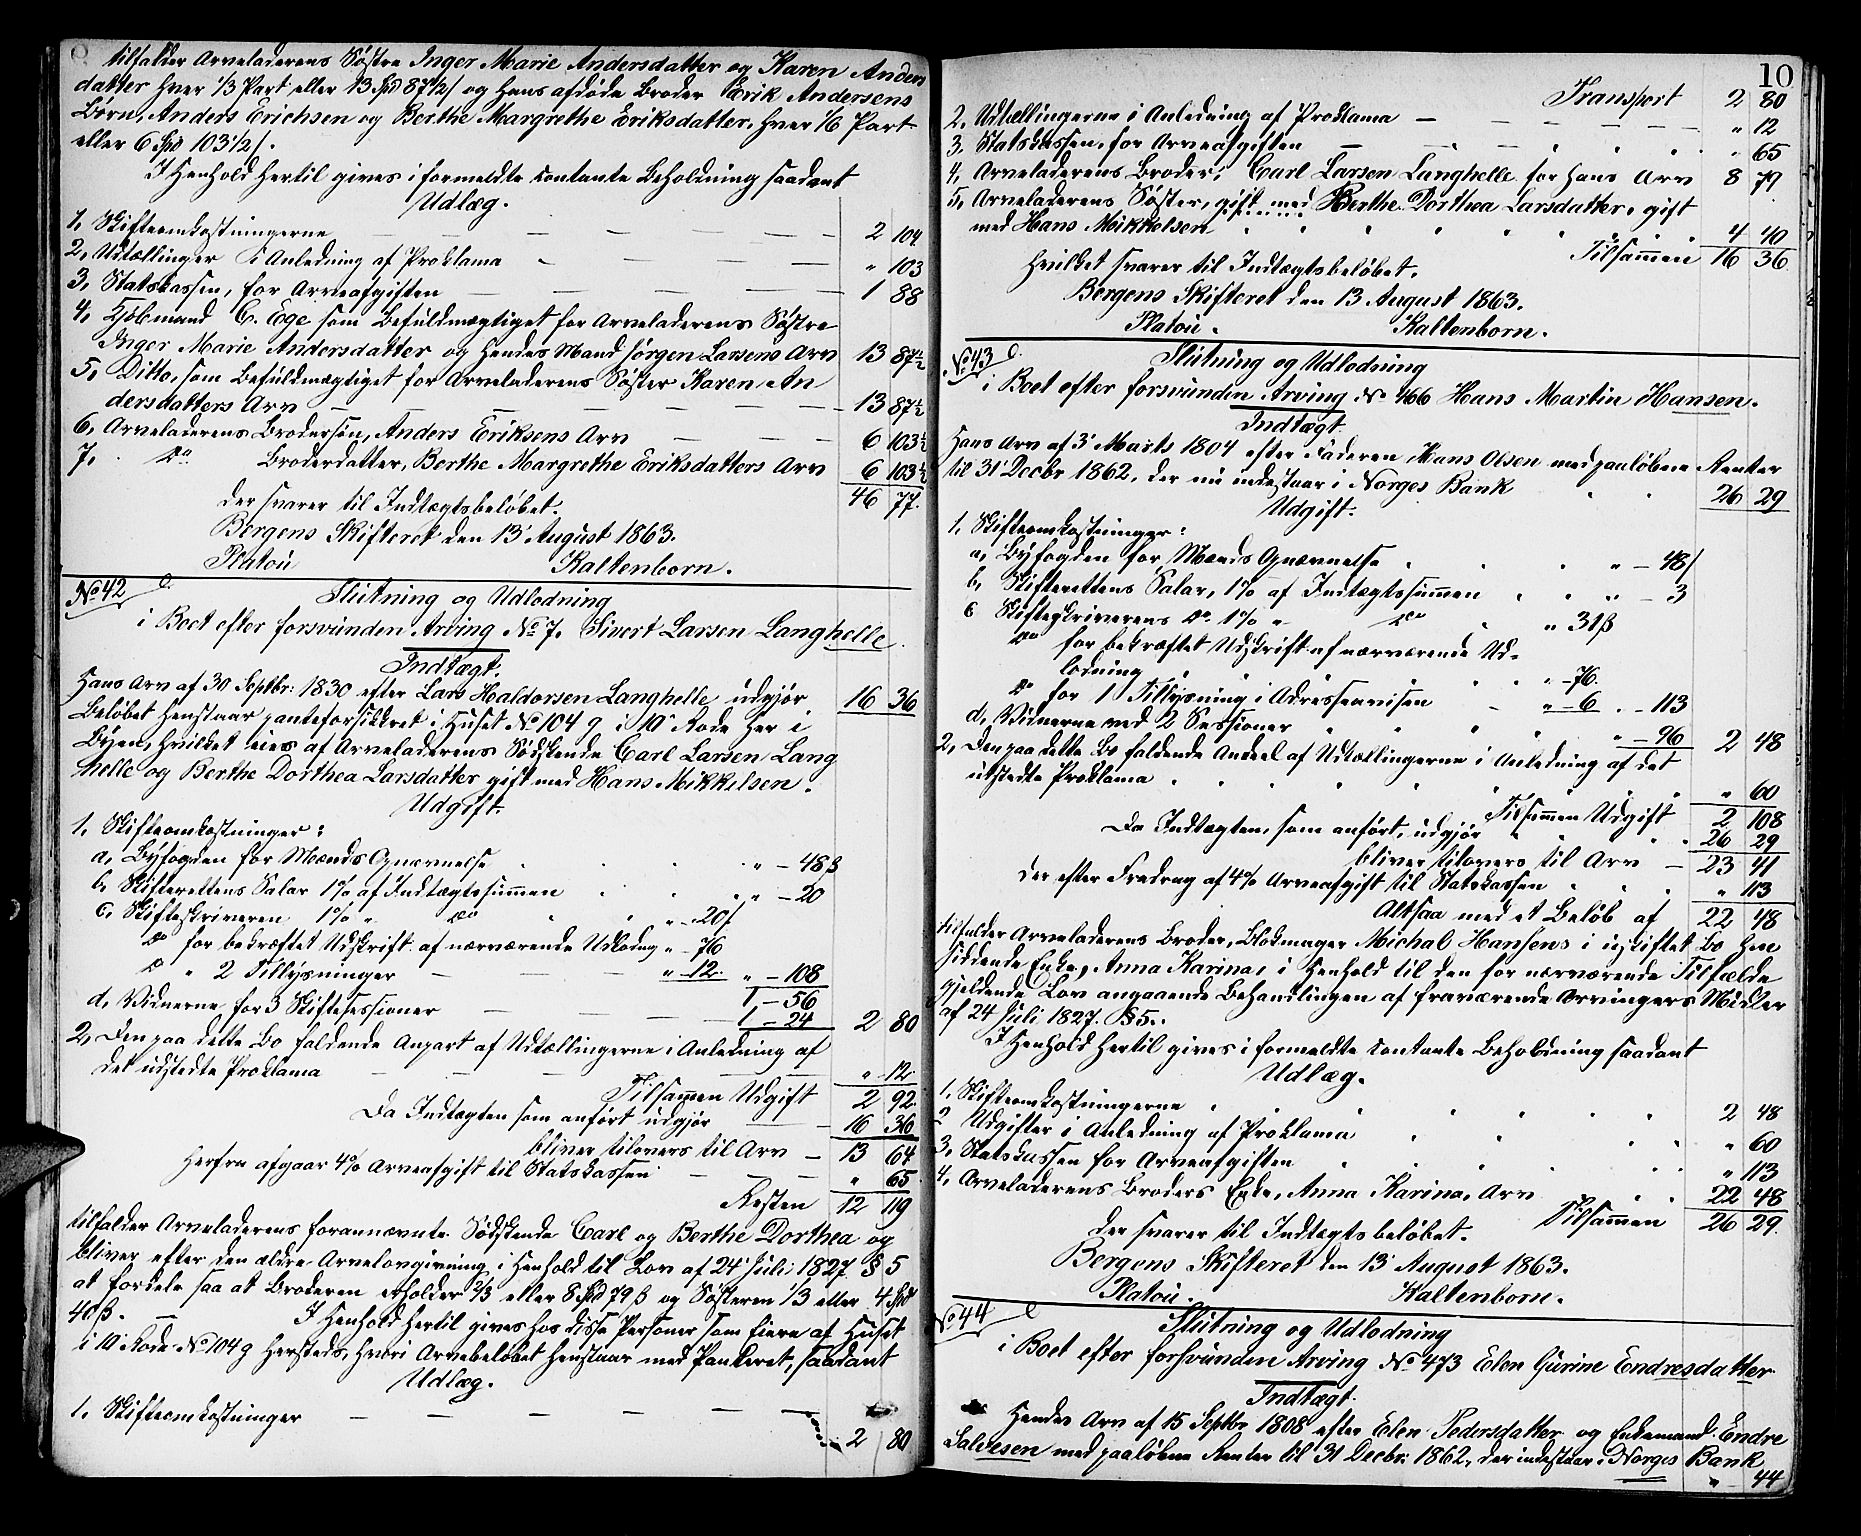 tilfalder Arveladerens Søstre Inger Marie Andersdatter og Karen Anders
datter hver 1/3 Part eller 13 Spd 87 1/2 ß og hans afdøde Broder Erik Andersens
Børn, Anders Erichsen og Berthe Margrethe Eriksdatter, hver 1/6 Part
eller 6 Spd 103 1/2 ß.
I Henhold hertil gives i formeldte contante Beholdning saadant
Udlæg.
1, Skifteomkostningerne — — — — — 2 104
2, Udtællinger i Anledning af Proklama — — — " 103
3, Statskassen, for Arveafgiften — — — 1 88
4, Kjøbmand C. Ege som Befuldmægtiget for Arveladerens Søstre
Inger Marie Andersdatter og hendes Mand Jørgen Larsens Arv 13 87 1/2
5, Ditto, som Befuldmægtiget for Arveladerens Søster Karen An
dersdatters Arv — — — — — 13 87 1/2
6, Arveladerens Brodersøn, Anders Eriksens Arv — — 6 103 1/2
7, Do Broderdatter, Berthe Margrethe Eriksdatters Arv 6 103 1/2
46 77.
der svarer til Indtægtsbeløbet.
Bergens Skifteret den 13 August 1863.
Platou Kaltenborn.
No 42 Slutning og Udlodning
i Boet efter forsvunden Arving No 7. Sivert Larsen Langhelle.
Indtægt.
Hans Arv af 30 Septbr: 1830 efter Lars Haldorsen Langhelle udgjør 16 36
Beløbet henstaar panteforsikkret i Huset No 104 g i 10 Rode her i
Byen, hvilket eies af Arveladerens Sødskende Carl Larsen Lang
helle og Berthe Dorthea Larsdatter gift med Hans Mikkelsen.
Udgift.
1, Skifteomkostninger:
a, Byfogden for Mænds Opnævnelse " — 48 ß
b, Skifterettens Salar 1% af Indtægtssummen " — 20
c, Skifteskriveren 1% " do " — 20 ß
do for bekræftet Udskrift af nærværende Udlodng " — 76
do " 2 Tillysninger — — — " — 12. " — 108
1 — 56
d, Vidnerne for 3 Skiftesessioner — — — 1 — 24 2 80
2, Den paa dette Bo faldende Anpart af Udtællingerne i Anledning af
det udstedte Proklama — — — — " 12
Tilsammen Udgift 2 92.
Da Indtægten som anført udgjør — 16 36
bliver tilovers til Arv — 13 64
Herfra afgaar 4% Arveafgift til Statskassen — — — " 65
Resten 12 119
tilfalder Arveladerens forannævnte Sødskende Carl og Berthe Dorthea og
bliver efter den ældre Arvelovgivning i Henhold til Lov af 24 Juli 1827 § 5
at fordele saa at Broderen erholder 2/3 eller 8 Spd 79 ß og Søsteren 1/3 eller 4 Spd
40 ß. — I Henhold hertil gives hos disse Personer som Eiere af Huset
i 10 Rode No 104 g hersteds, hvori Arvebeløbet henstaar med Panteret, saadant
Udlæg.
1. Skifteomkostninger — — — — — 2 80
10
Transport 2 80
2, Udtællingerne i Anledning af Proklama — — — — " 12
3, Statskassen, for Arveafgiften — — " 65
4, Arveladerens Broder, Carl Larsen Langhelle for hans Arv 8 79
5, Arveladerens Søster, gift med Berthe Dorthea Larsdatter, gift
med Hans Mikkelsen 4 40
Tilsammen 16 36
hvilket svarer til Indtægtsbeløbet.
Bergens Skifteret den 13 August 1863.
Platou. Kaltenborn.
No 43 Slutning og Udlodning
i Boet efter forsvunden Arving No 466 Hans Martin Hansen.
Indtægt.
Hans Arv af 3 Marts 1804 efter Faderen Hans Olsen med paaløbne Renter
til 31 Decbr 1862, der nu indestaar i Norges Bank 26 29
Udgift.
1, Skifteomkostninger:
a, Byfogden for Mænds Opnævnelse " — 48 ß
b, Skifterettens Salar, 1% af Indtægtssummen " — 3
c Skifteskriverens do 1% " do " 31 ß
do for bekræftet Udskrift af nærværende Ud-
lodning " — 76.
do for 1 Tillysning i Adresseavisen " — 6 . — 113
d, Vidnerne ved 2 Sessioner " — 96 2 48
2, Den paa dette Bo faldende Andeel af Udtællingerne i Anledning af det
udstedte Proklama " 60
Tilsammen Udgift 2 108
Da Indtægten, som anført, udgjør 26 29
bliver tilovers til Arv — 23 41
der efter Fradrag af 4% Arveafgift til Statskassen " 113
Altsaa med et Beløb af 22 48
tilfalder Arveladerens Broder, Blokmager Michal Hansens i uskiftet Bo hen
siddende Enke, Anna Karina, i Henhold til den for nærværende Tilfælde
gjeldende Lov angaaende Behandlingen af fraværende Arvingers Midler
af 24 Juli 1827. § 5.
I Henhold hertil gives i formeldte contante Beholdning saadant
Udlæg.
1, Skifteomkostningerne 2 48
2 Udgifter i Anledning af Proklama " 60
3, Statskassen for Arveafgiften " 113
4, Arveladerens Broders Enke, Anna Karina, Arv 22 48
Tilsammen 26 29.
der svarer til Indtægtsbeløbet.
Bergens Skifteret den 13 August 1863.
Platou. Kaltenborn.
No 44 Slutning og Udlodning
i Boet efter forsvunden Arving No 473 Elen Gurine Endresdatter
Indtægt.
Hendes Arv af 15 Septbr 1808 efter Elen Pedersdatter og Enkemand Endre
Salvesen med paaløbne Renter til 31 Decbr: 1862, der indestaar i Norges Bank
" 44